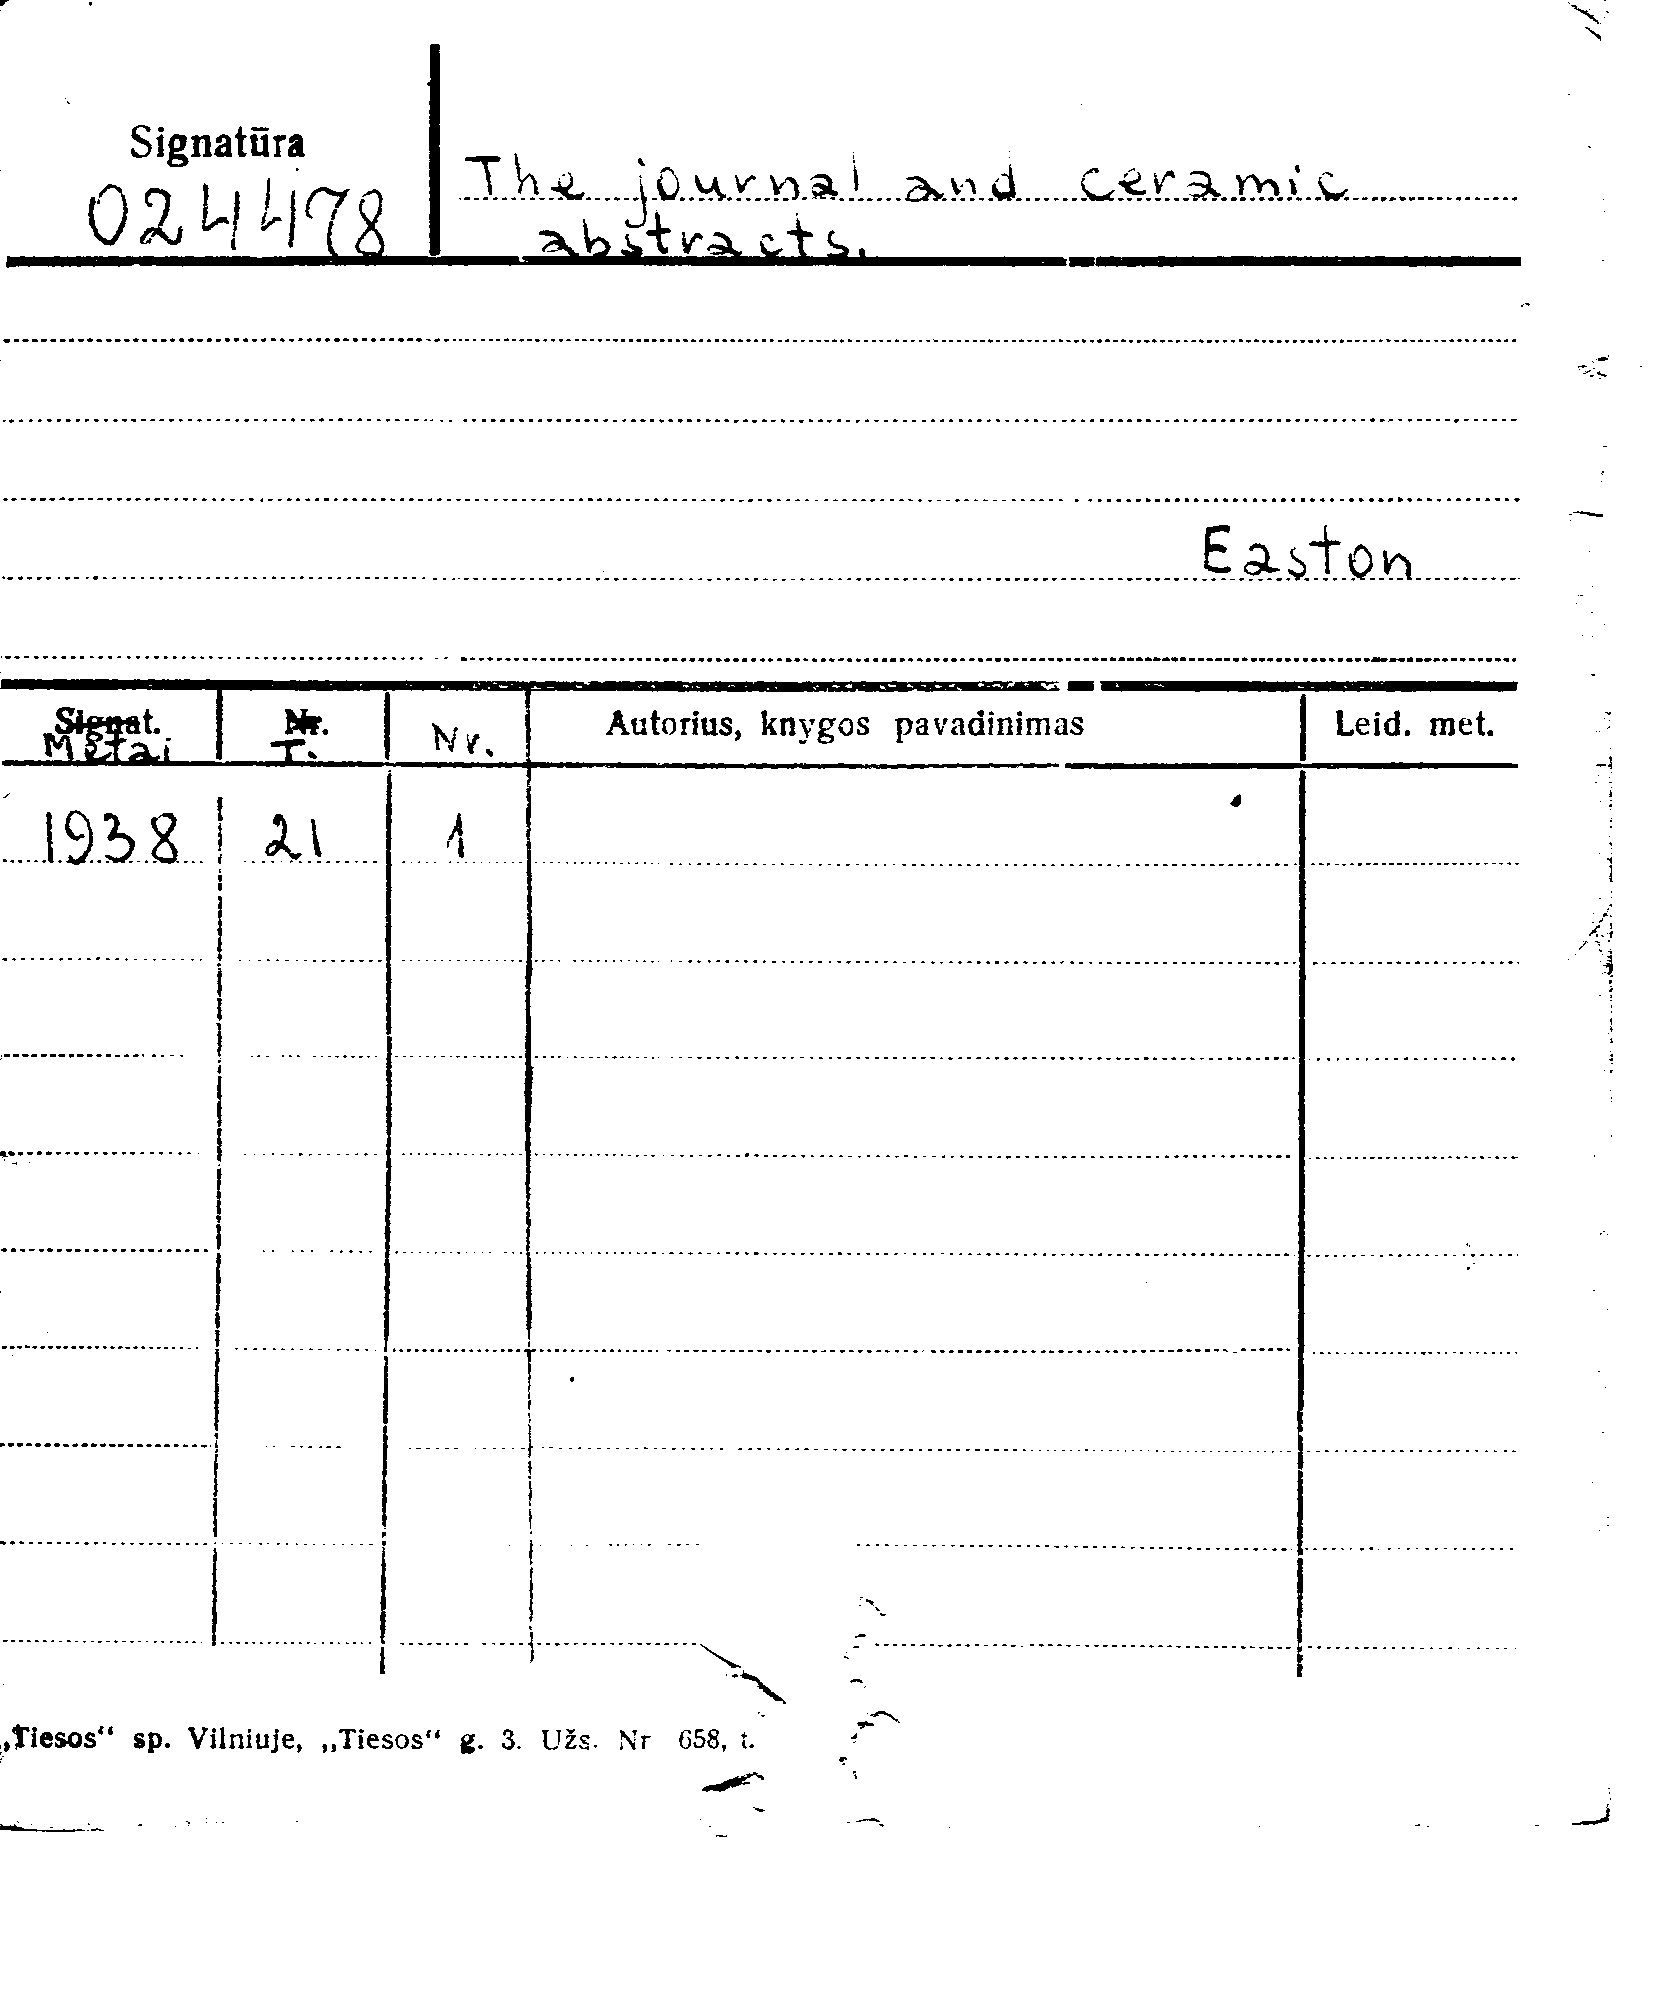 Signatūra
024478
The journal and ceramic
abstracts.
Easton
Signat. Nr. Nr. Autorius, knygos pavadinimas Leid. met.
Metai T.
1938 21 1
„Tiesos“ sp. Vilniuje, „Tiesos“ g. 3. Užs. Nr 658, t.